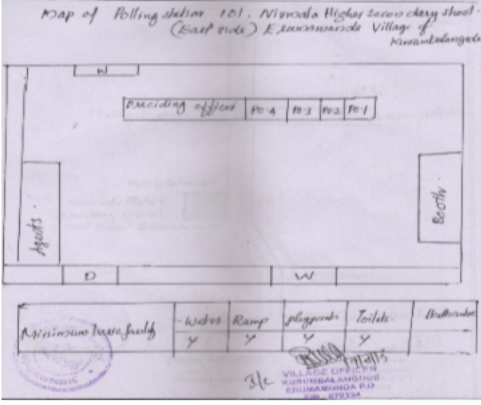 Map of Polling station 101. Nirmala Higher secondary school.
(East side) Erumamunda Village of
Kurumbalangode
W
Presiding officer PO-4 PO-3 PO-2 PO-1
Agents.
Booth.
D W
Minimum base facility Water Ramp playground Toilets.
Y Y Y Y
VILLAGE OFFICER
KURUMBALANGODE
ERUMAMUNDA P.O